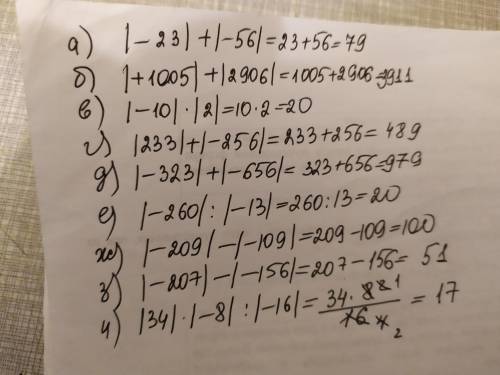 а) |-23| + |-56| = 23+56 = 79
б) |+1005| + |2906| = 1005+2906 = 3911
в) |-10| · |2| = 10·2 = 20
г) |233| + |-256| = 233+256 = 489
д) |-323| + |-656| = 323+656 = 979
е) |-260| : |-13| = 260:13 = 20
ж) |-209| - |-109| = 209-109 = 100
з) |-207| - |-156| = 207-156 = 51
и) |34| · |-8| : |-16| = 34·8 1 / 16 2 = 17